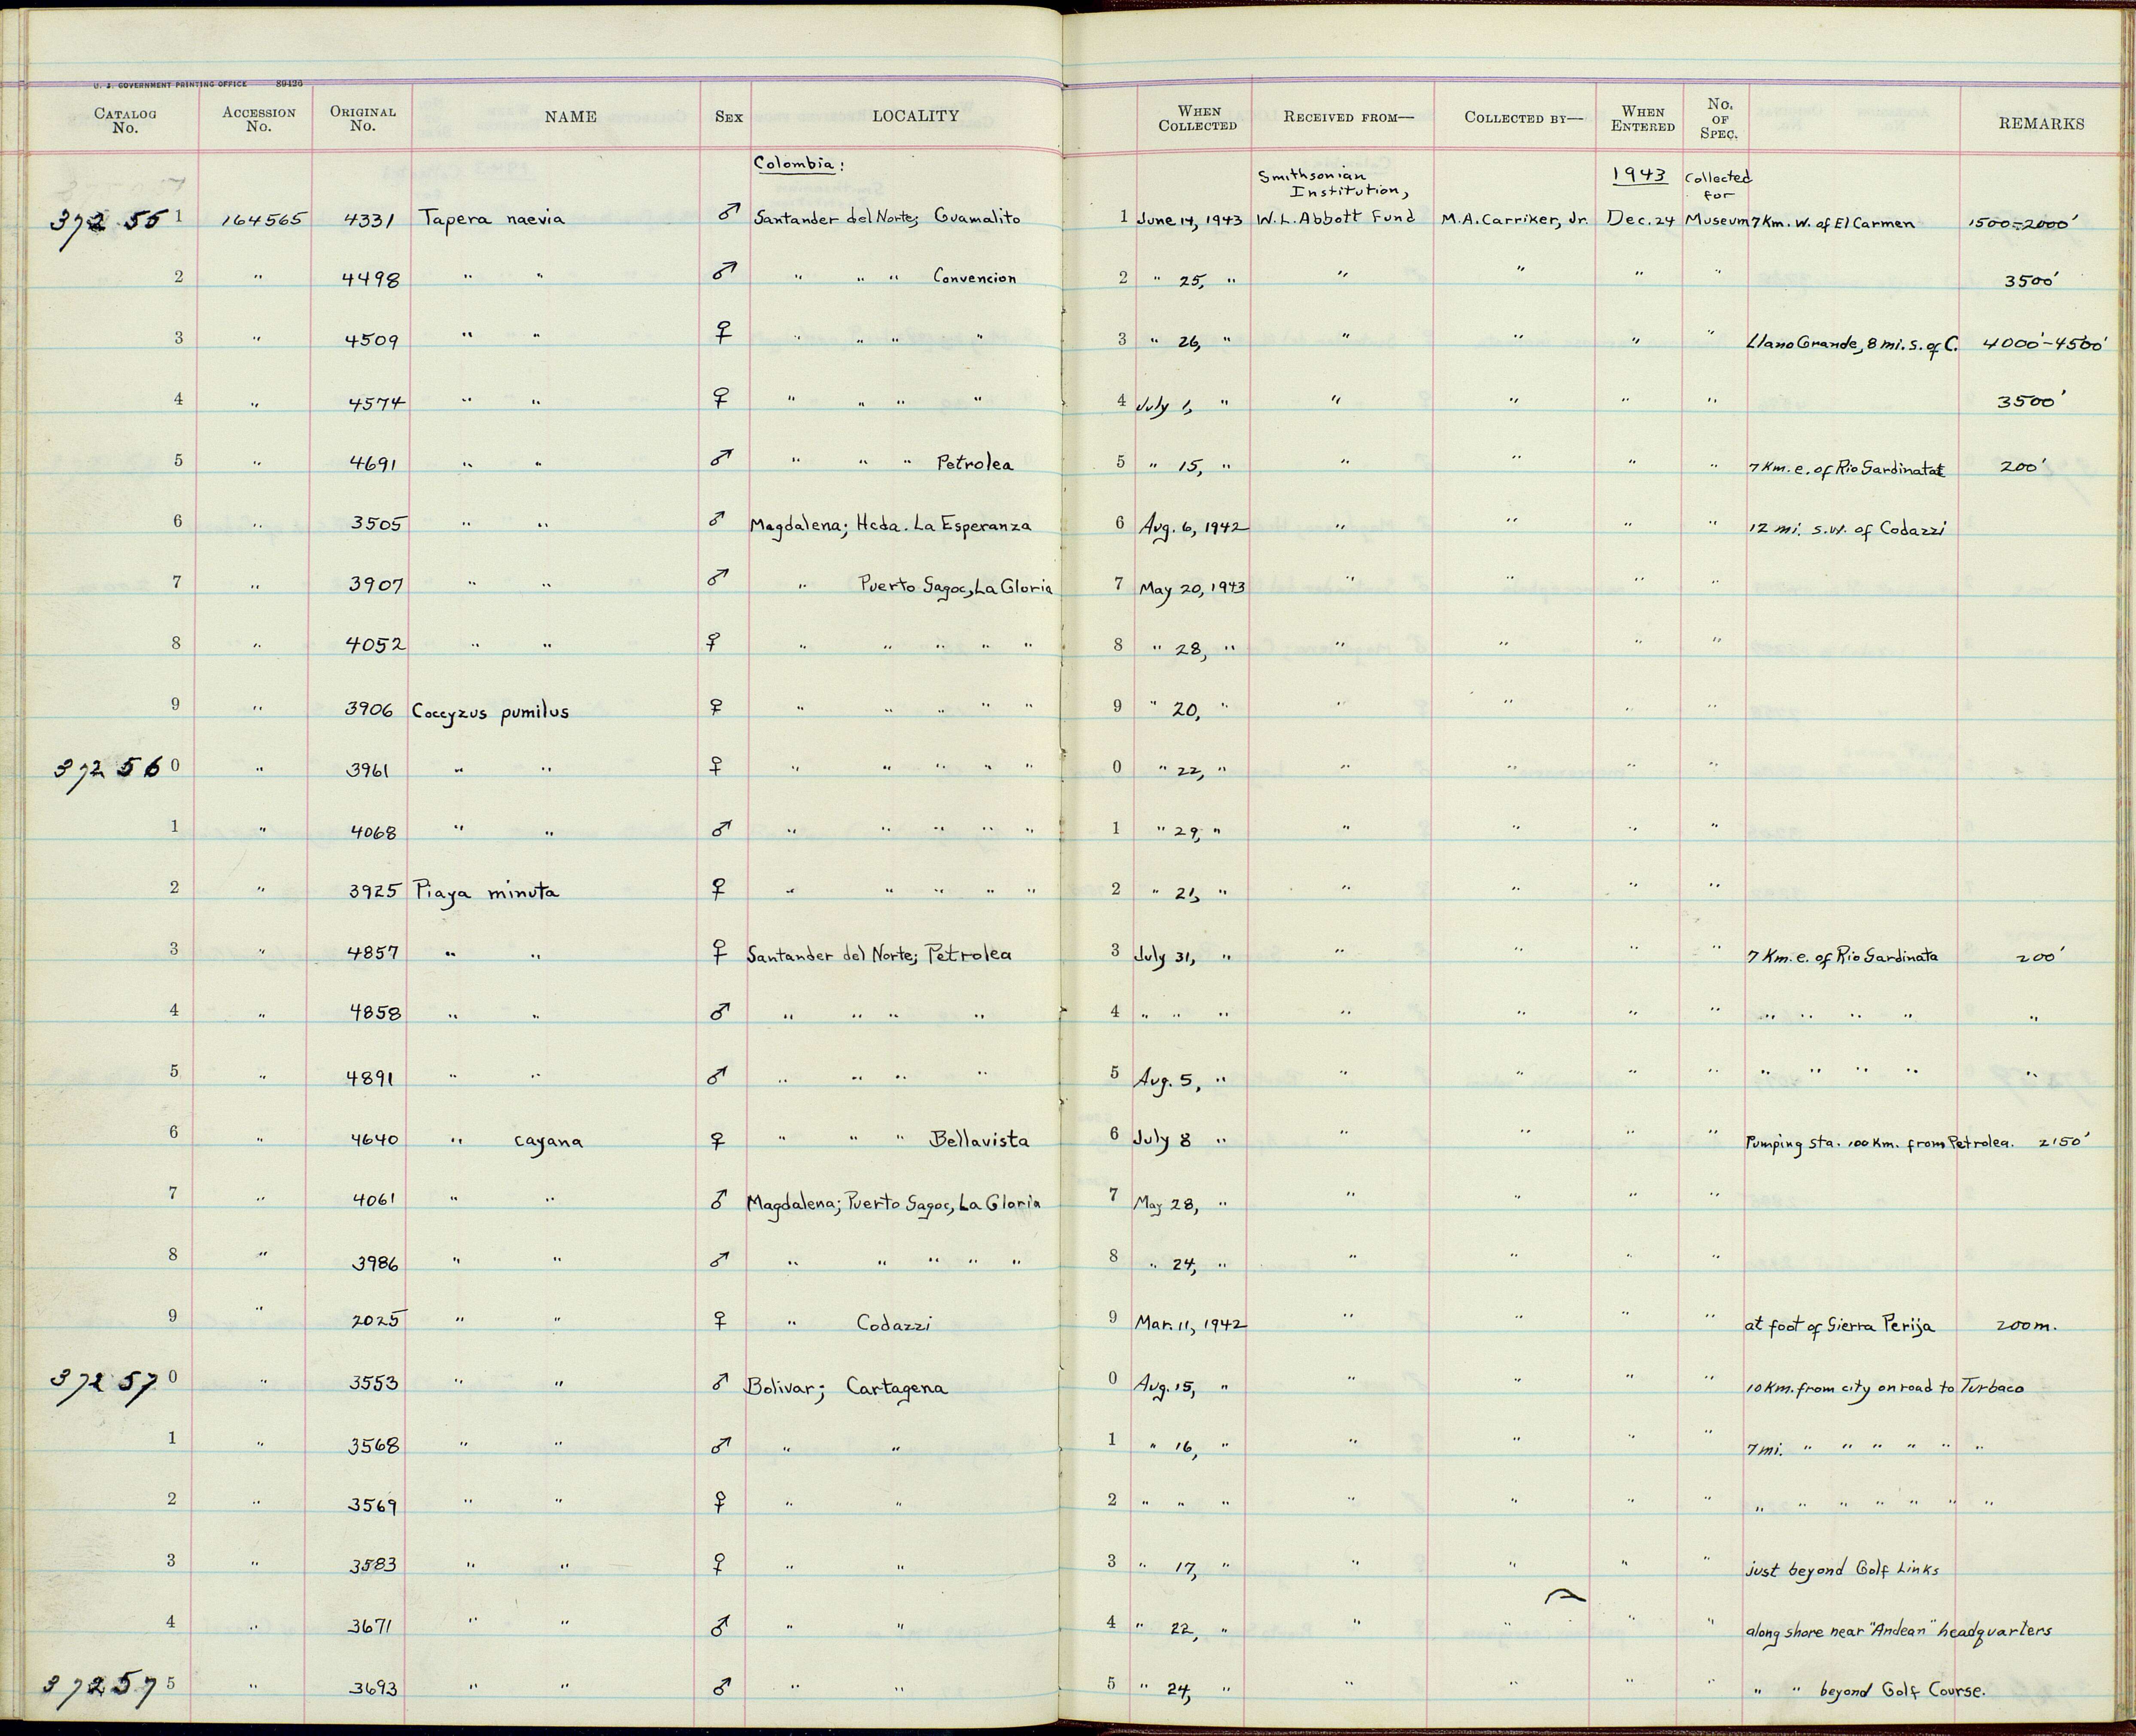 U. S. GOVERNMENT PRINTING OFFICE 89426
CATALOG No. ACCESSION No. ORIGINAL No. NAME SEX LOCALITY WHEN COLLECTED RECEIVED FROM— COLLECTED BY— WHEN ENTERED No. OF SPEC. REMARKS
Colombia: Smithsonian Institution, 1943 Collected for
372551 164565 4331 Tapera naevia ♂ Santander del Norte; Guamalito 1 June 14, 1943 W. L. Abbott Fund M. A. Carriker, Jr. Dec. 24 Museum 7 Km. W. of El Carmen 1500-2000'
2 " 4498 " " ♂ " " " Convencion 2 " 25, " " " " " 3500'
3 " 4509 " " ♀ " " " " 3 " 26, " " " " " Llano Grande, 8 mi. s. of C. 4000'-4500'
4 " 4574 " " ♀ " " " " 4 July 1, " " " " " 3500'
5 " 4691 " " ♂ " " " Petrolea 5 " 15, " " " " " 7 Km. e. of Rio Sardinata 200'
6 " 3505 " " ♂ Magdalena; Hcda. La Esperanza 6 Aug. 6, 1942 " " " " 12 mi. s.w. of Codazzi
7 " 3907 " " ♂ " Puerto Sagoc, La Gloria 7 May 20, 1943 " " " "
8 " 4052 " " ♀ " " " " " 8 " 28, " " " " "
9 " 3906 Coccyzus pumilus ♀ " " " " " 9 " 20, " " " " "
372560 " 3961 " " ♀ " " " " " 0 " 22, " " " " "
1 " 4068 " " ♂ " " " " " 1 " 29, " " " " "
2 " 3925 Piaya minuta ♀ " " " " " 2 " 21, " " " " "
3 " 4857 " " ♀ Santander del Norte; Petrolea 3 July 31, " " " " " 7 Km. e. of Rio Sardinata 200'
4 " 4858 " " ♂ " " " " 4 " " " " " " " " " " " "
5 " 4891 " " ♂ " " " " 5 Aug. 5, " " " " " " " " " "
6 " 4640 " cayana ♀ " " " Bellavista 6 July 8 " " " " " Pumping sta. 100 Km. from Petrolea. 2150'
7 " 4061 " " ♂ Magdalena; Puerto Sagoc, La Gloria 7 May 28, " " " " "
8 " 3986 " " ♂ " " " " " 8 " 24, " " " " "
9 " 2025 " " ♀ " Codazzi 9 Mar. 11, 1942 " " " " at foot of Sierra Perija 200 m.
372570 " 3553 " " ♂ Bolivar; Cartagena 0 Aug. 15, " " " " " 10 Km. from city on road to Turbaco
1 " 3568 " " ♂ " " 1 " 16, " " " " " 7 mi. " " " " " "
2 " 3569 " " ♀ " " 2 " " " " " " " " " " " " " "
3 " 3583 " " ♀ " " 3 " 17, " " " " " just beyond Golf Links
4 " 3671 " " ♂ " " 4 " 22, " " " " " along shore near "Andean" headquarters
372575 " 3693 " " ♂ " " 5 " 24, " " " " " " " beyond Golf Course.